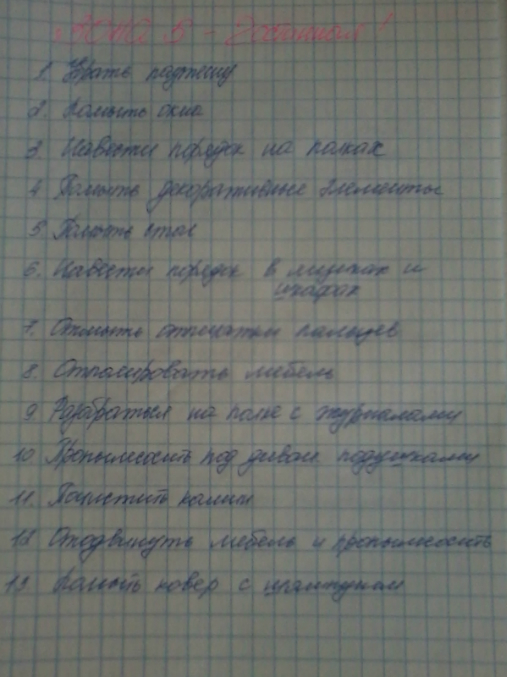 Зона 5 - Гостиная!
1. Убрать паутину
2. Помыть окна
3. Навести порядок на полках
4. Помыть декоративные элементы
5. Помыть стол
6. Навести порядок в ящиках и
шкафах
7. Отмыть отпечатки пальцев
8. Отполировать мебель
9. Разобраться на полке с журналами
10 Пропылесосить под диван. подушками
11. Почистить камин
12. Отодвинуть мебель и пропылесосить
13. Помыть ковер с шампунем